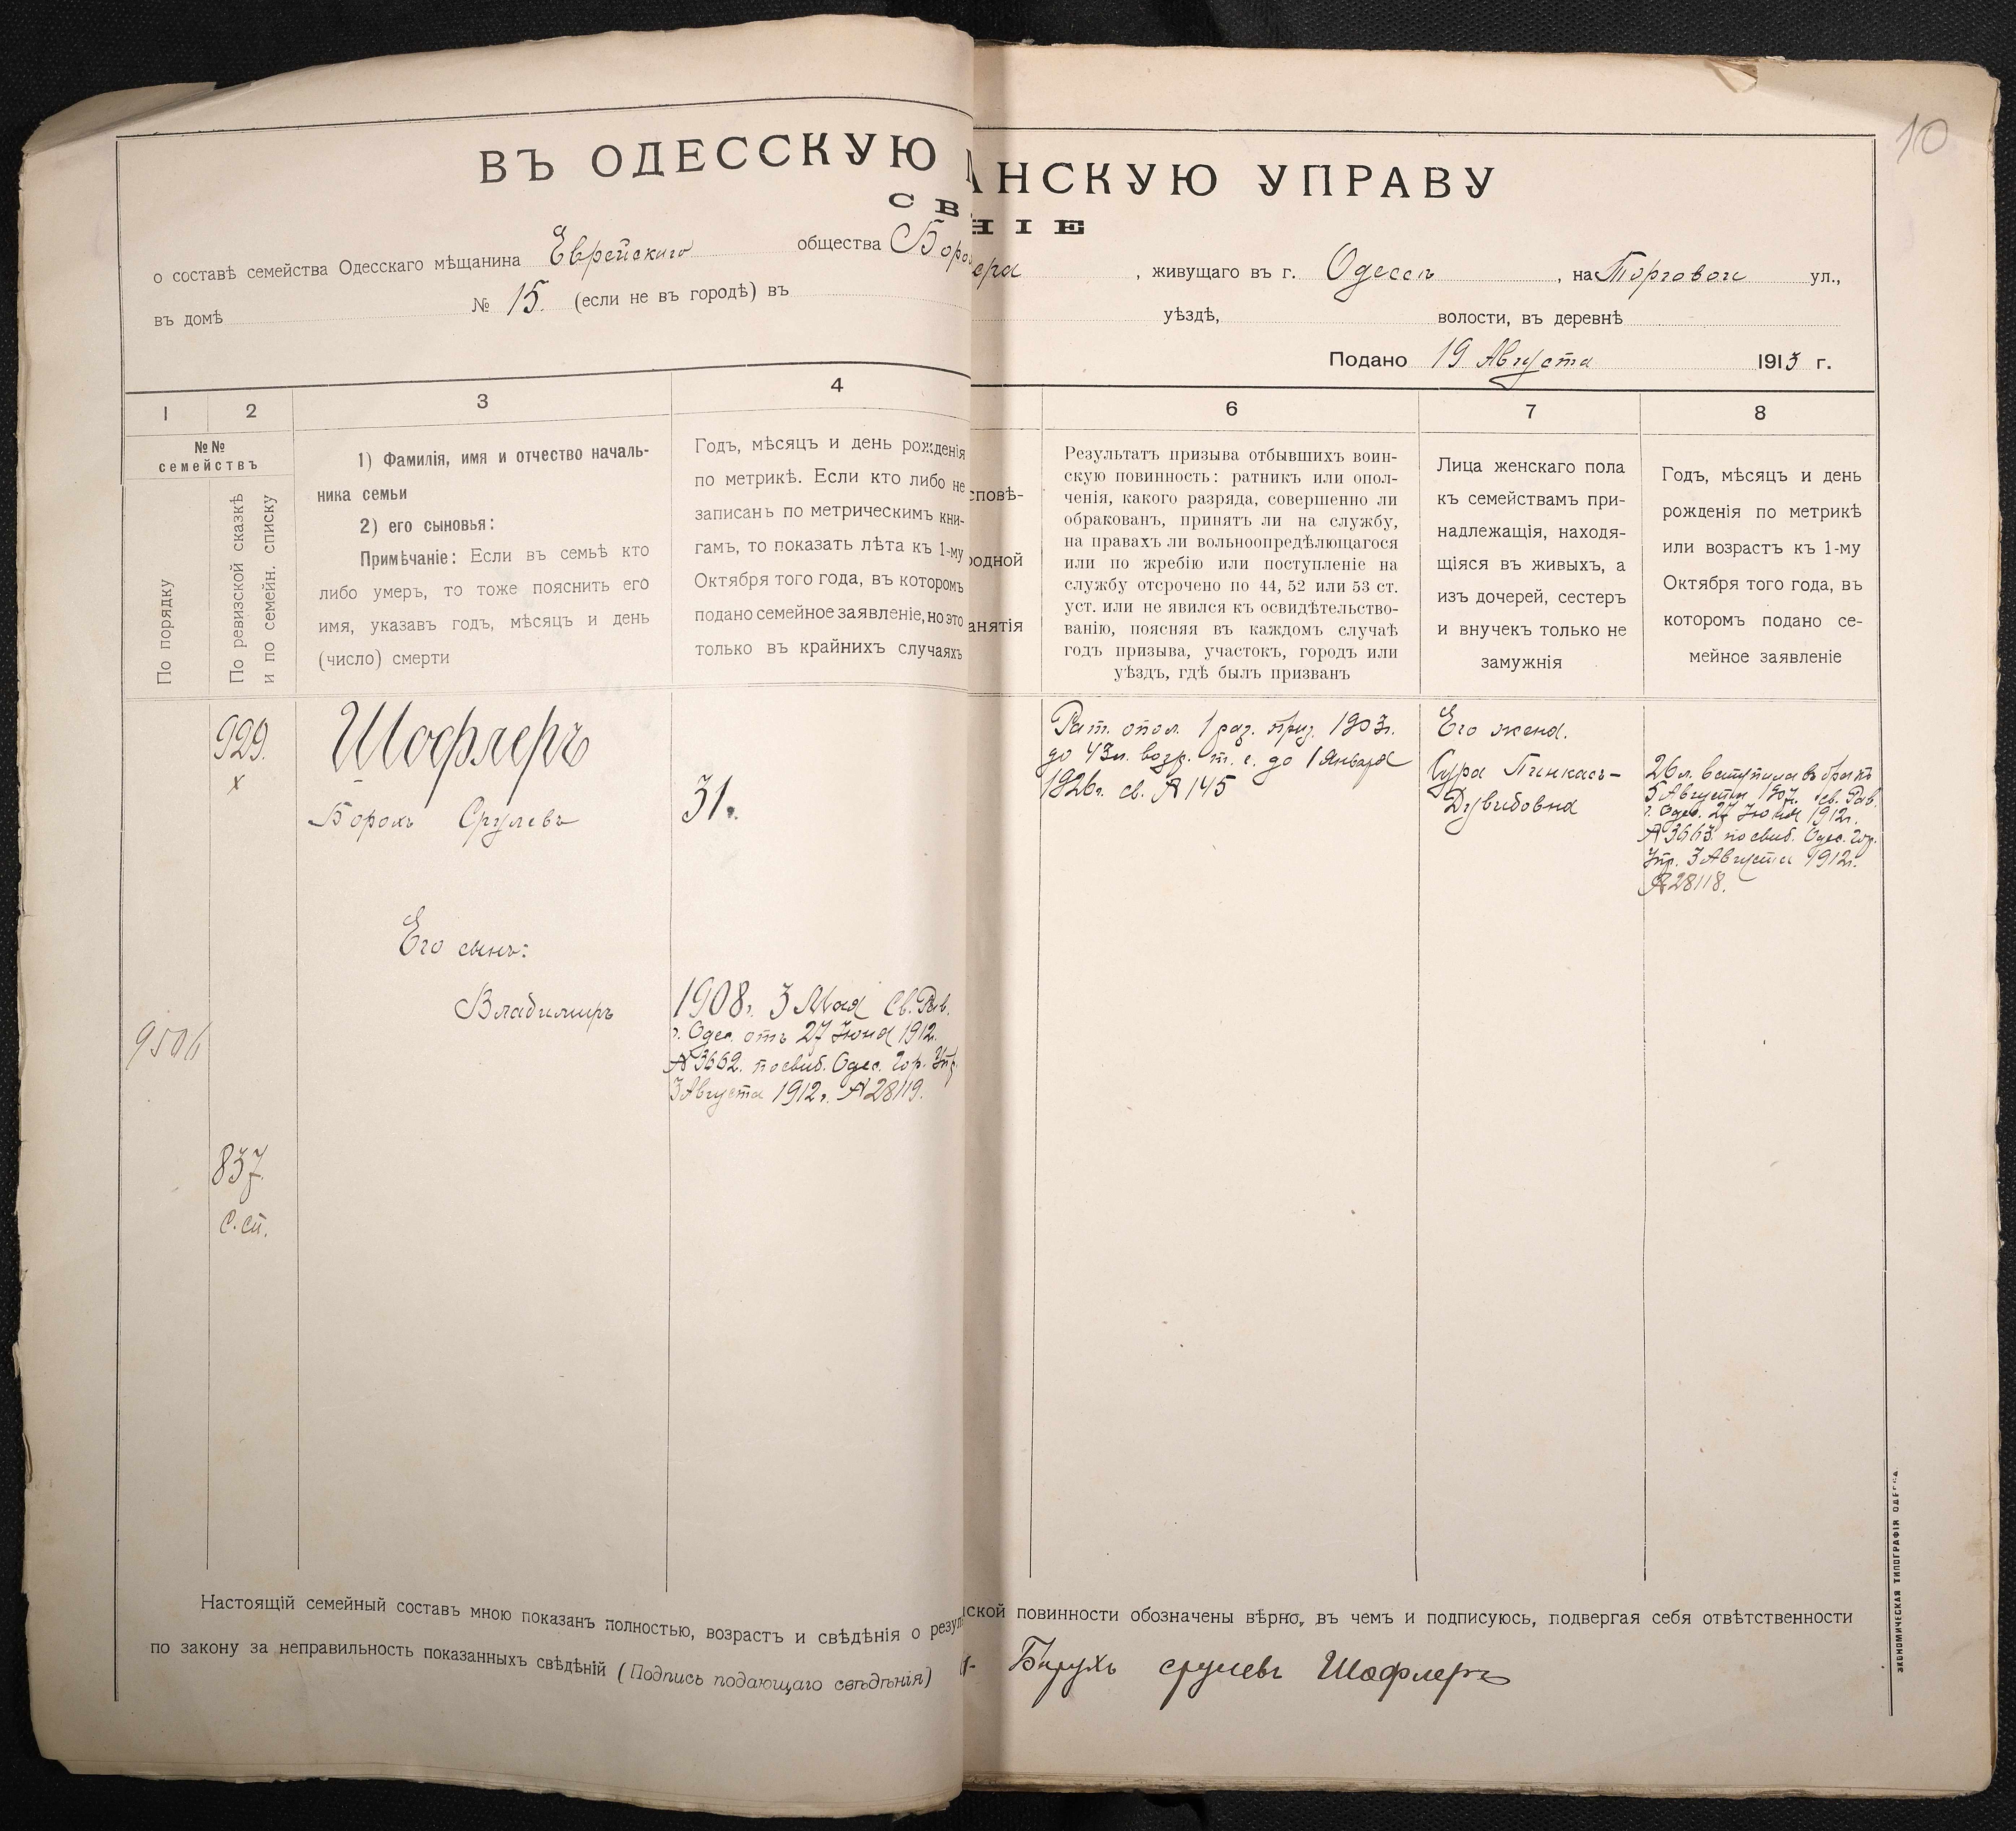 10
ВЪ ОДЕССКУЮ АНСКУЮ УПРАВУ
СВ НІЕ
о составѣ семейства Одесскаго мѣщанина Еврейскаго общества Боро ера, живущаго въ г. Одессѣ, на Торговой ул.,
въ домѣ № 15. (если не въ городѣ) въ уѣздѣ, волости, въ деревнѣ
Подано 19 Августа 1913 г.
1
2
3
4
6
7
8
№№
семействъ
По порядку
По ревизской сказкѣ
и по семейн. списку
1) Фамилія, имя и отчество началь-
ника семьи
2) его сыновья:
Примѣчаніе: Если въ семьѣ кто
либо умеръ, то тоже пояснить его
имя, указавъ годъ, мѣсяцъ и день
(число) смерти
Годъ, мѣсяцъ и день рожденія
по метрикѣ. Если кто либо не
записанъ по метрическимъ кни-
гамъ, то показать лѣта къ 1-му
Октября того года, въ которомъ
подано семейное заявленіе, но это
только въ крайнихъ случаяхъ
сповѣ-
родной
анятія
Результатъ призыва отбывшихъ воин-
скую повинность: ратникъ или опол-
ченія, какого разряда, совершенно ли
обракованъ, принятъ ли на службу,
на правахъ ли вольноопредѣлющагося
или по жребію или поступленіе на
службу отсрочено по 44, 52 или 53 ст.
уст. или не явился къ освидѣтельство-
ванію, поясняя въ каждомъ случаѣ
годъ призыва, участокъ, городъ или
уѣздъ, гдѣ былъ призванъ
Лица женскаго пола
къ семействамъ при-
надлежащія, находя-
щіяся въ живыхъ, а
изъ дочерей, сестеръ
и внучекъ только не
замужнія
Годъ, мѣсяцъ и день
рожденія по метрикѣ
или возрастъ къ 1-му
Октября того года, въ
которомъ подано се-
мейное заявленіе
929.
х
Шафлеръ
Борохъ Сруілевъ
31.
Рат. опол. 1 раз. приз. 1903г.
до 43л. возр. т. е. до 1 Января
1926г. св. № 145
Его жена.
Сура Пинкасъ-
Дувидовна
26 л. вступила въ бракъ
5 Августа 1907. св. Рав.
г. Одес. 27 Іюня 1912г.
№ 3663. по свид. Одес. Гор.
Упр. 3 Августа 1912г.
№ 28118.
Его сынъ:
Владимиръ
1908г. 3 Мая Св. Рав.
г. Одес. отъ 27 Іюня 1912.
№ 3662. по свид. Одес. Гор. Упр.
3 Августа 1912г. № 28119.
9506
837.
С. сп.
Настоящій семейный составъ мною показанъ полностью, возрастъ и свѣдѣнія о резул ской повинности обозначены вѣрно, въ чемъ и подписуюсь, подвергая себя отвѣтственности
по закону за неправильность показанныхъ свѣдѣній (Подпись подающаго свѣдѣнія) Барухъ срулевъ Шафлеръ
ЭКОНОМИЧЕСКАЯ ТИПОГРАФІЯ ОДЕССА.